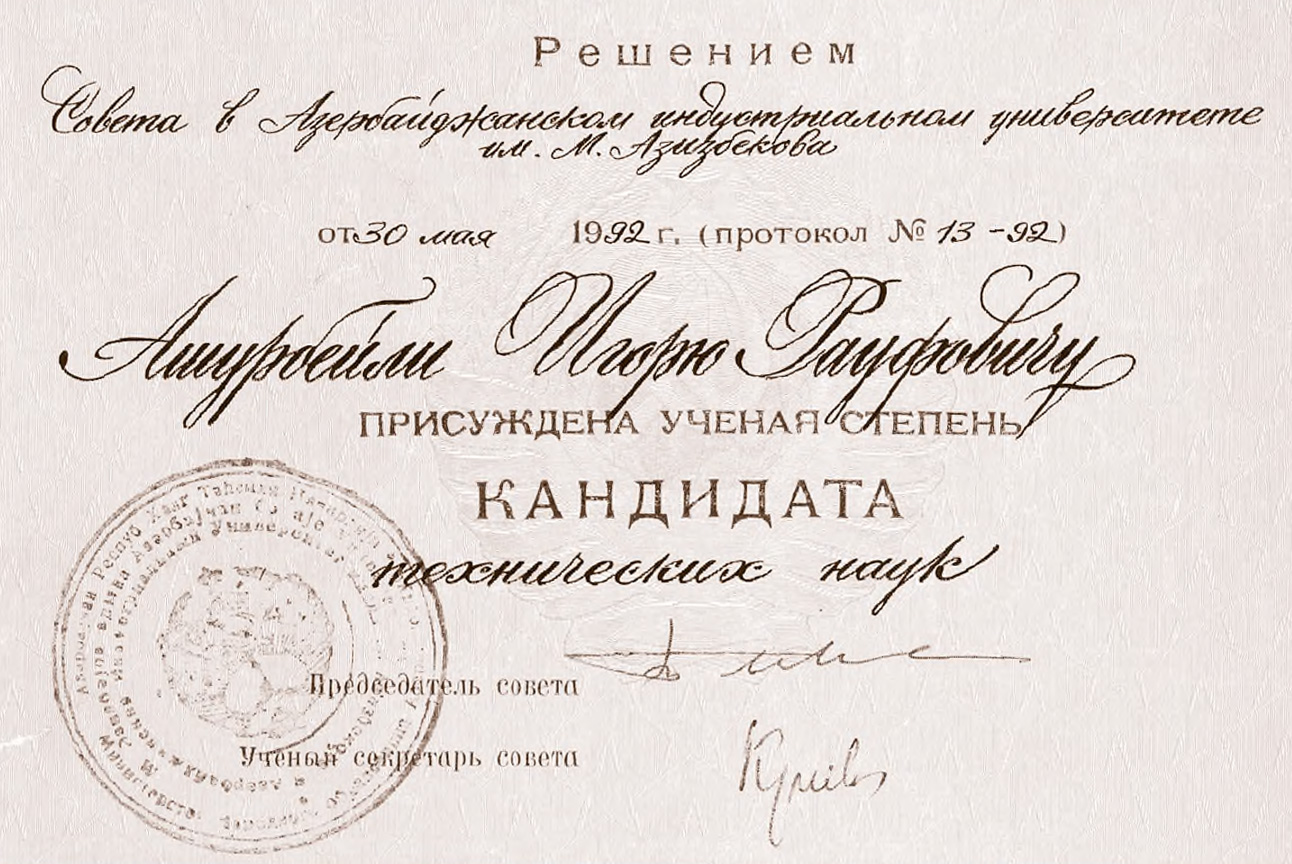 Решением
Совета в Азербайджанском индустриальном университете
им. М. Азизбекова
от 30 мая 1992 г. (протокол № 13-92)
Ашурбейли Игорю Рауфовичу
ПРИСУЖДЕНА УЧЕНАЯ СТЕПЕНЬ
КАНДИДАТА
технических наук
Председатель совета
Ученый секретарь совета